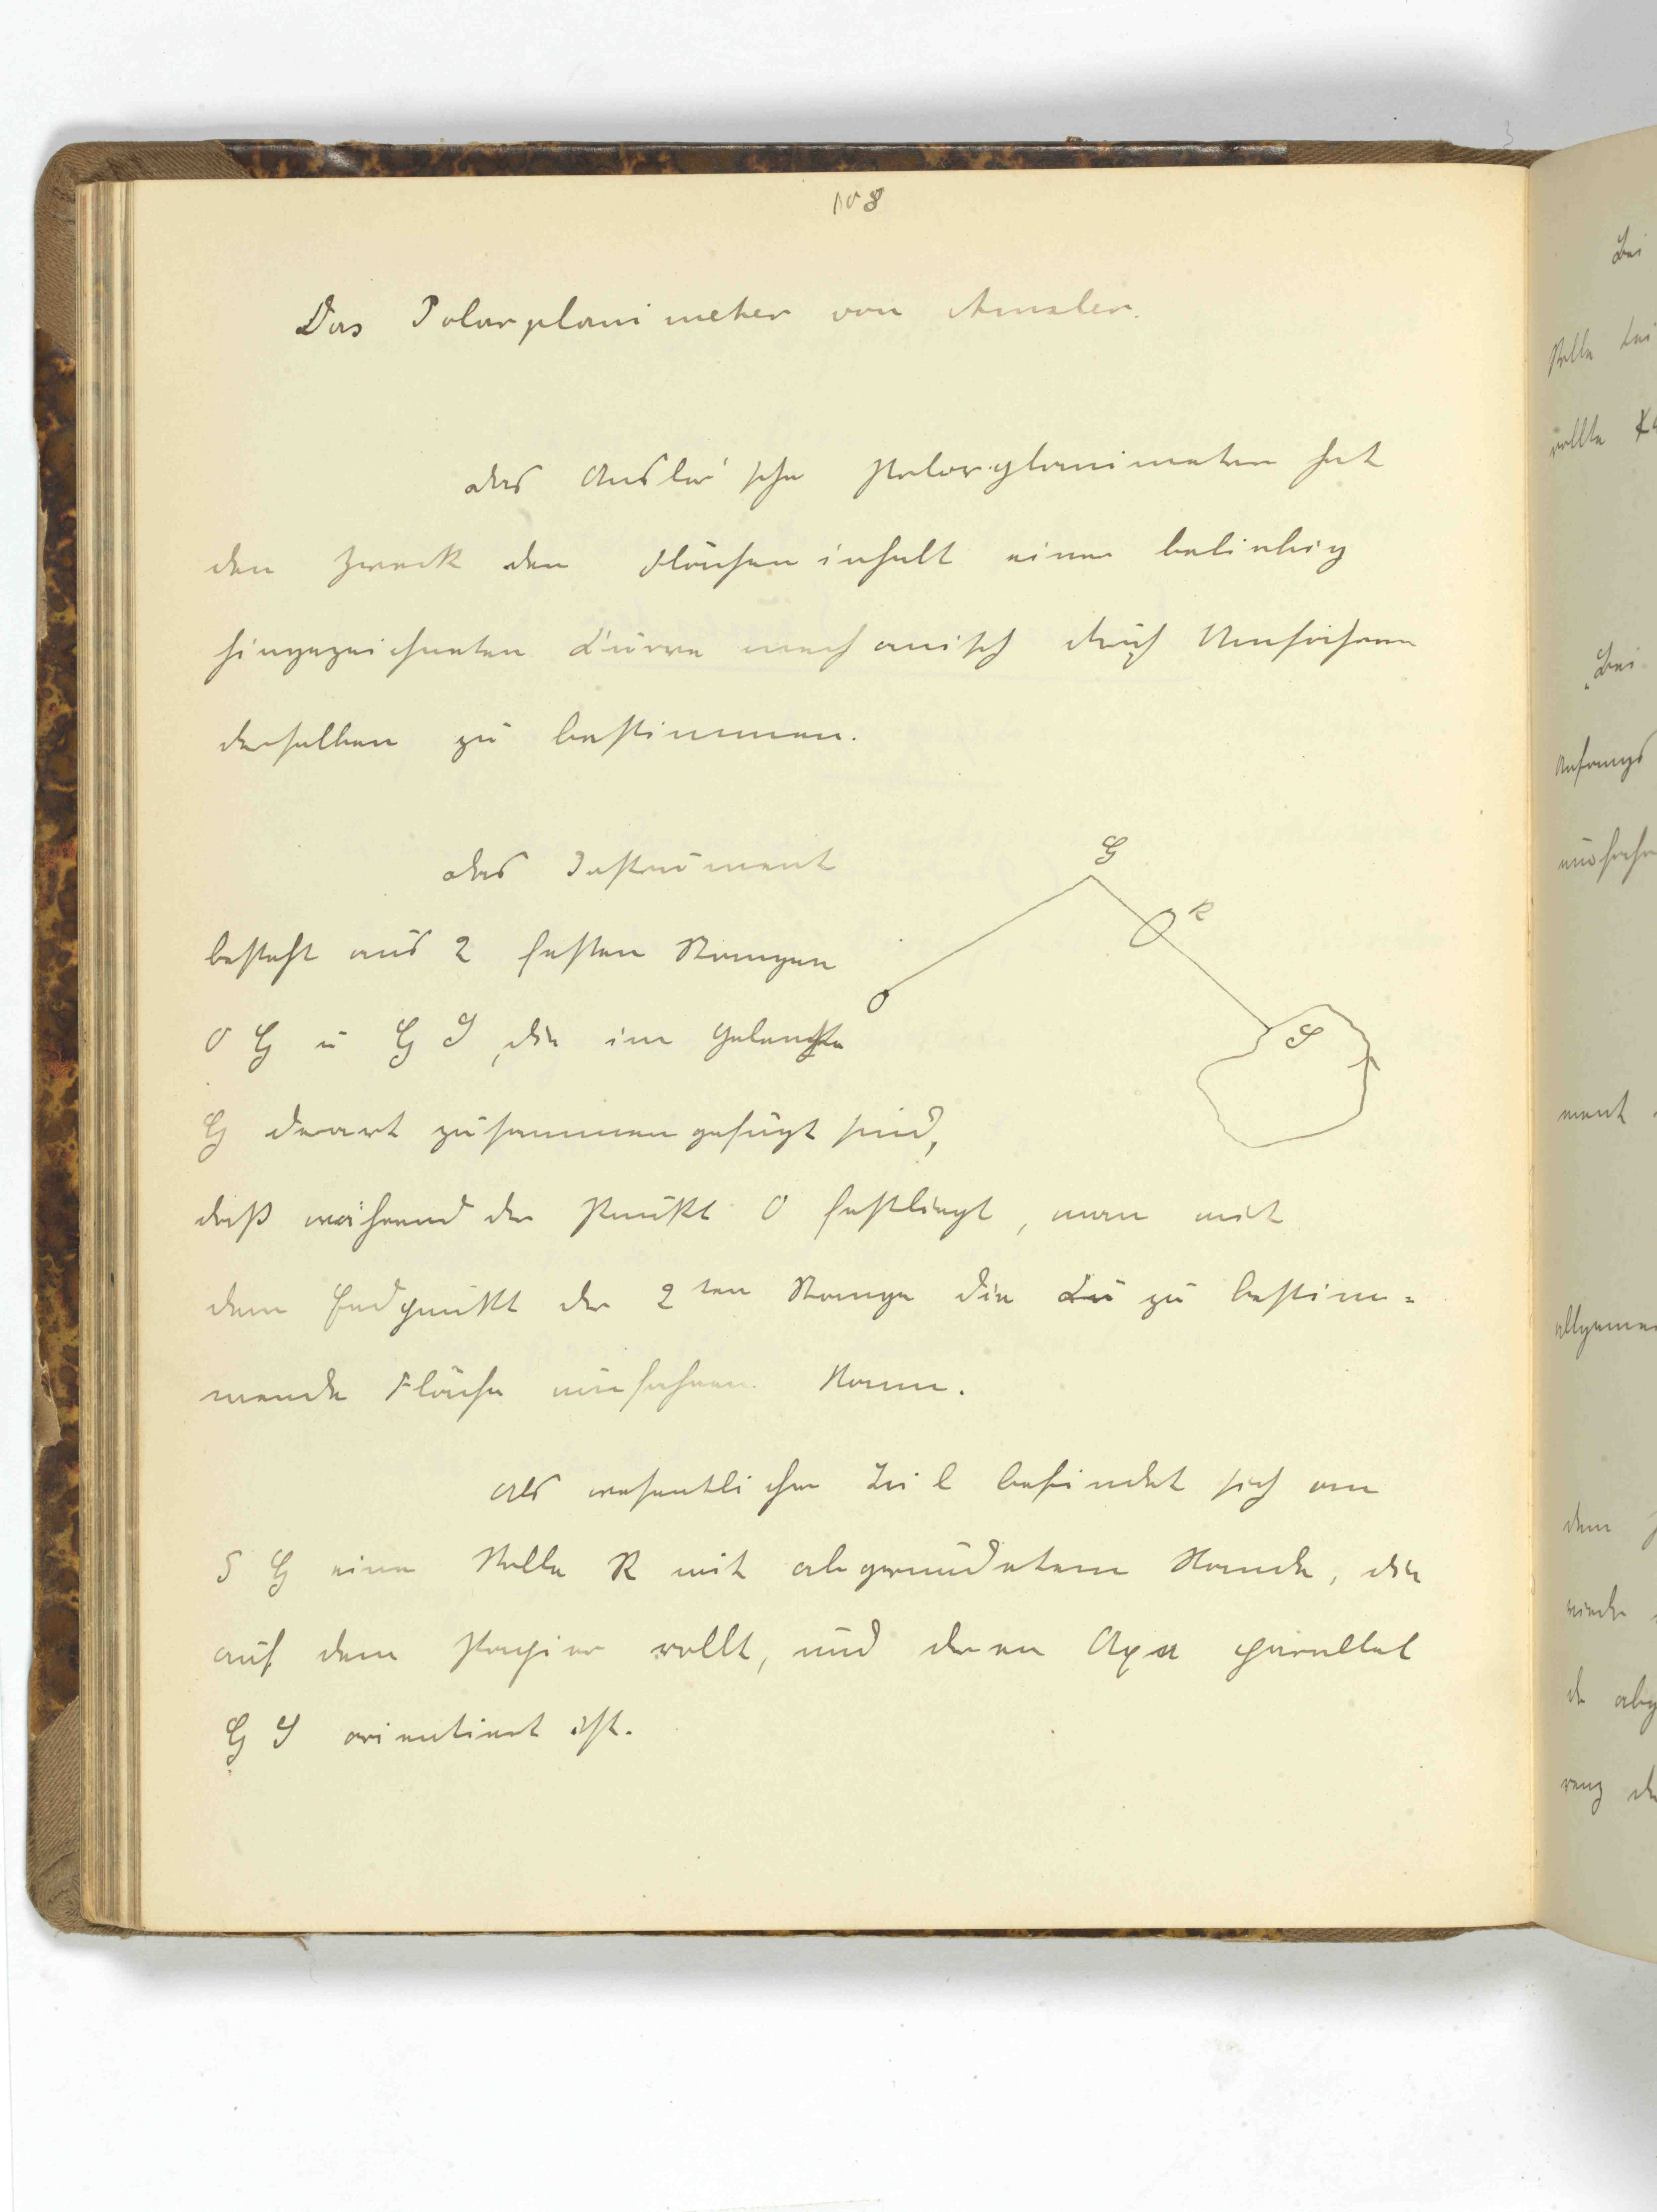 108
Das Polarplanimeter von Amsler.
Das Amsler'sche Polarplanimeter hat
den Zweck den Flächeninhalt einer beliebig
hingezeichneten Curve mechanisch durch Umfahren
derselben zu bestimmen.
Das Instrument
besteht aus 2 festen Stangen
O G u G S, die im Gelenke
G derart zusammengefügt sind,
daß während der Punkt O festliegt, man mit
dem Endpunkt der 2ten Stange die zu bestim=
mende Fläche umfahren kann.
Als wesentlicher Teil befindet sich an
S G eine Rolle R mit abgerundetem Rande, die
auf dem Papier rollt, und deren Axe parallel
G S orientiert ist.
G
R
O
S
Bei
Rolle
rollte
Bei
Anfangs
umfahr
ment
allgemei
dem
wieder
de abg
renz de